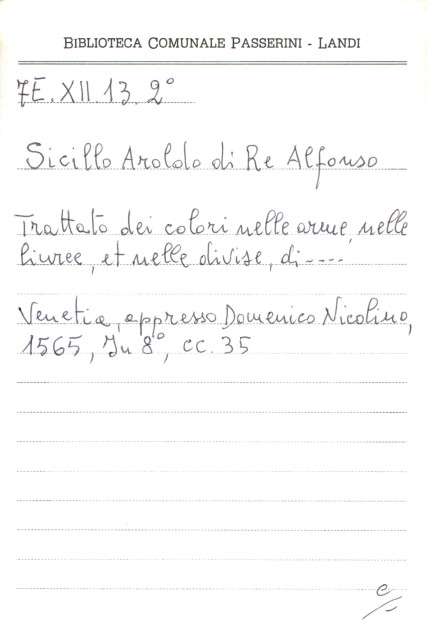 BIBLIOTECA COMUNALE PASSERINI - LANDI
7E.XII.13.2°
Sicillo Araldo di Re Alfonso
Trattato dei colori nelle arme, nelle
livree, et nelle divise, di----
Venetia, appresso Domenico Nicolino,
1565, In 8°, cc. 35